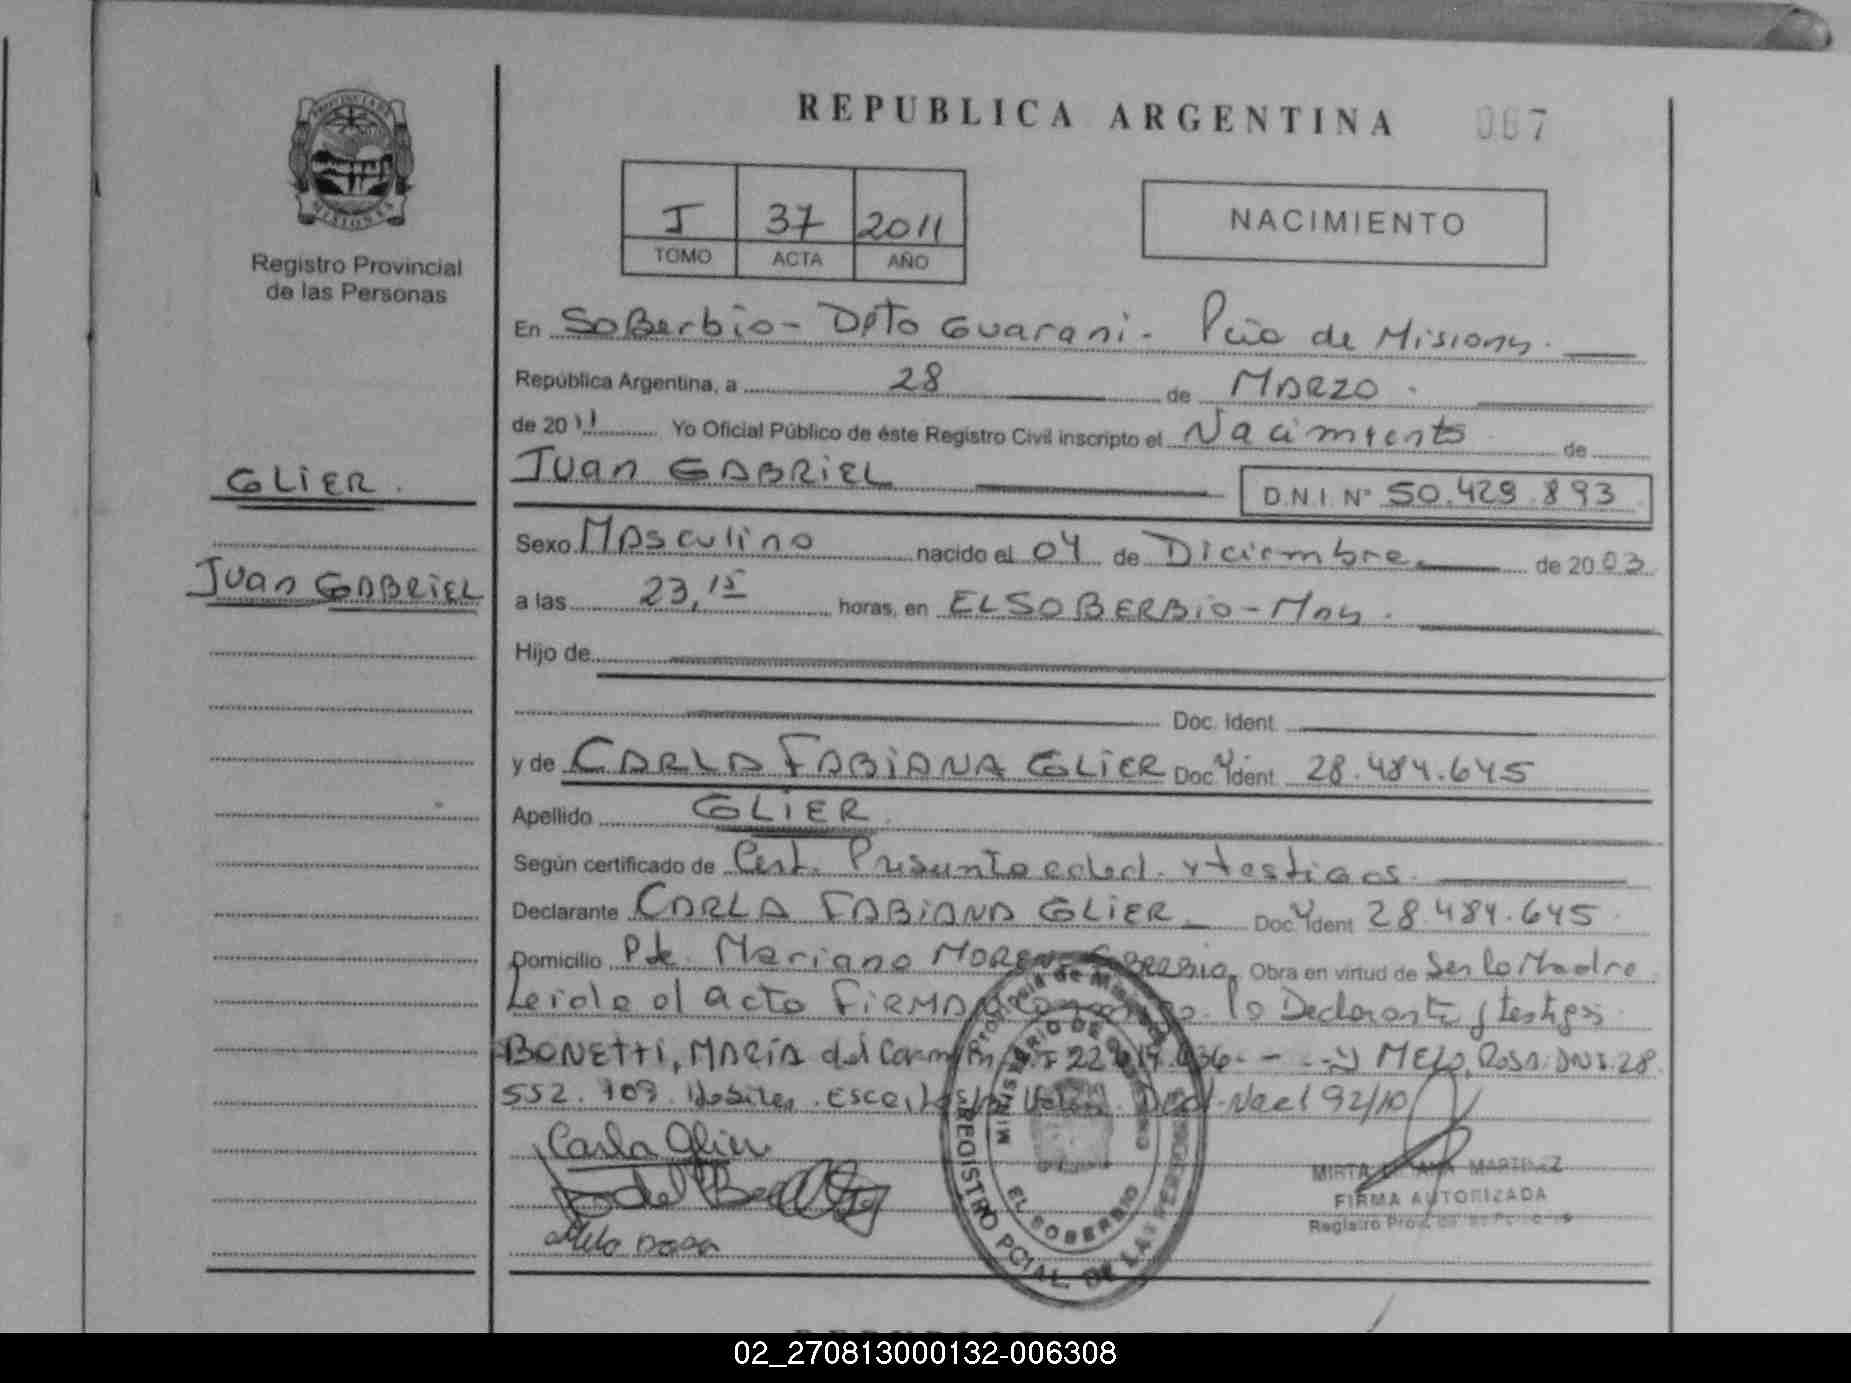 REPUBLICA ARGENTINA
067
PROVINCIA DE MISIONES
Registro Provincial
de las Personas
I 37 2011
TOMO ACTA AÑO
NACIMIENTO
En Soberbio - Dpto Guarani - Pcia de Misiones.
República Argentina, a 28 de MARZO.
de 2011 Yo Oficial Público de éste Registro Civil inscripto el Nacimiento de
GLIER.
JUAN GABRIEL D.N.I. Nº 50.429.893
Sexo Masculino nacido el 04 de Diciembre de 2003
Juan GABRIEL
a las 23,15 horas, en EL SOBERBIO - Mnes.
Hijo de
Doc. Ident.
y de CARLA FABIANA GLIER Doc. Ident. 28.484.645
Apellido GLIER
Según certificado de Cert. Presunta edad. y testigos.
Declarante CARLA FABIANA GLIER Doc. Ident 28.484.645
Domicilio Pje. Mariano MORENO SOBERBIO. Obra en virtud de Ser la Madre
Leida el acta FIRMAN la Declarante y testigos
BONETTI, MARIA del Carmen y MELO, ROSA. DNI. 28
552.109. Habiles. 92/10
Carla Glier
Melo Rosa
Provincia de Misiones
MINISTERIO DE GOBIERNO
EL SOBERBIO
REGISTRO PCIAL. DE LAS PERSONAS
MIRTA MARTINEZ
FIRMA AUTORIZADA
02_270813000132-006308